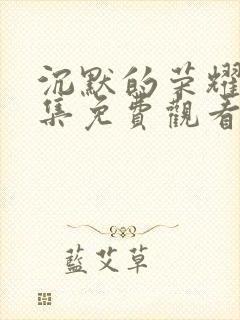 沉默的荣耀
集免費觀看
藍艾草